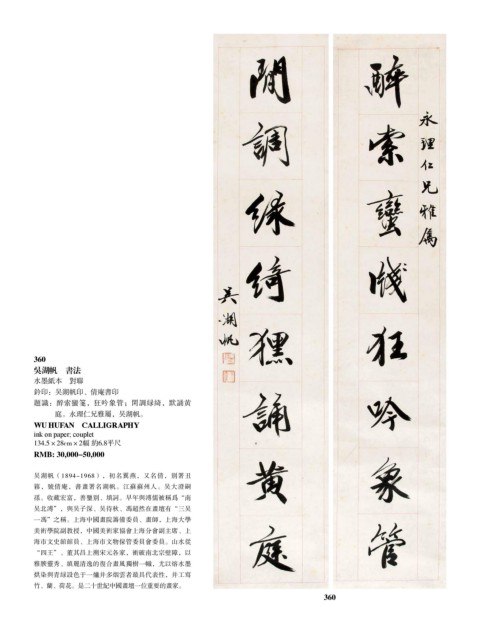 醉索蠻牋狂吟象管
永理仁兄雅屬
閒調綠綺默誦黃庭
吳湖帆
360
吳湖帆　書法
水墨紙本　對聯
鈐印：吳湖帆印、倩庵書印
題識：醉索蠻箋，狂吟象管；閑調綠綺，默誦黃
庭。永理仁兄雅屬，吳湖帆。
WU HUFAN　CALLIGRAPHY
ink on paper; couplet
134.5 × 28cm × 2幅 約6.8平尺
RMB: 30,000~50,000
吳湖帆（1894-1968），初名翼燕，又名倩，別署丑
簃，號倩庵，書畫署名湖帆。江蘇蘇州人。吳大澂嗣
孫。收藏宏富，善鑒別、填詞。早年與溥儒被稱爲“南
吳北溥”，與吳子深、吳待秋、馮超然在畫壇有“三吳
一馮”之稱。上海中國畫院籌備委員、畫師，上海大學
美術學院副教授，中國美術家協會上海分會副主席、上
海市文史館館員、上海市文物保管委員會委員。山水從
“四王”、董其昌上溯宋元各家，衝破南北宗壁障，以
雅腴靈秀、縝麗清逸的復合畫風獨樹一幟，尤以熔水墨
烘染與青綠設色于一爐并多烟雲者最具代表性，并工寫
竹、蘭、荷花。是二十世紀中國畫壇一位重要的畫家。
360